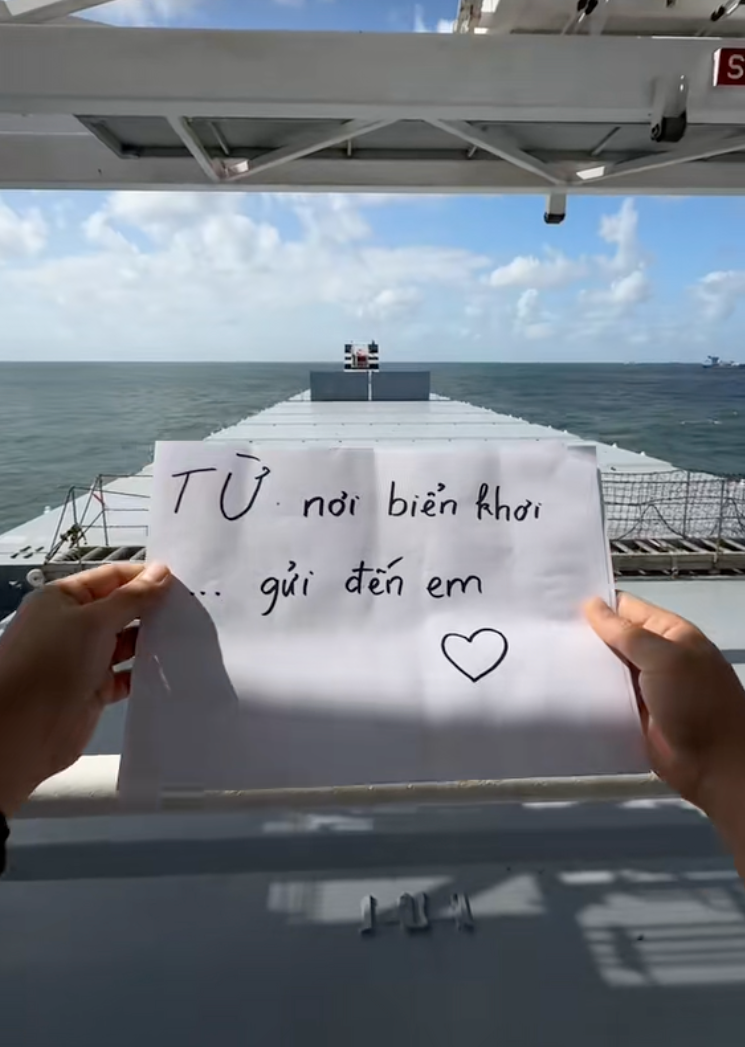 S
TỪ nơi biển khơi
... gửi đến em